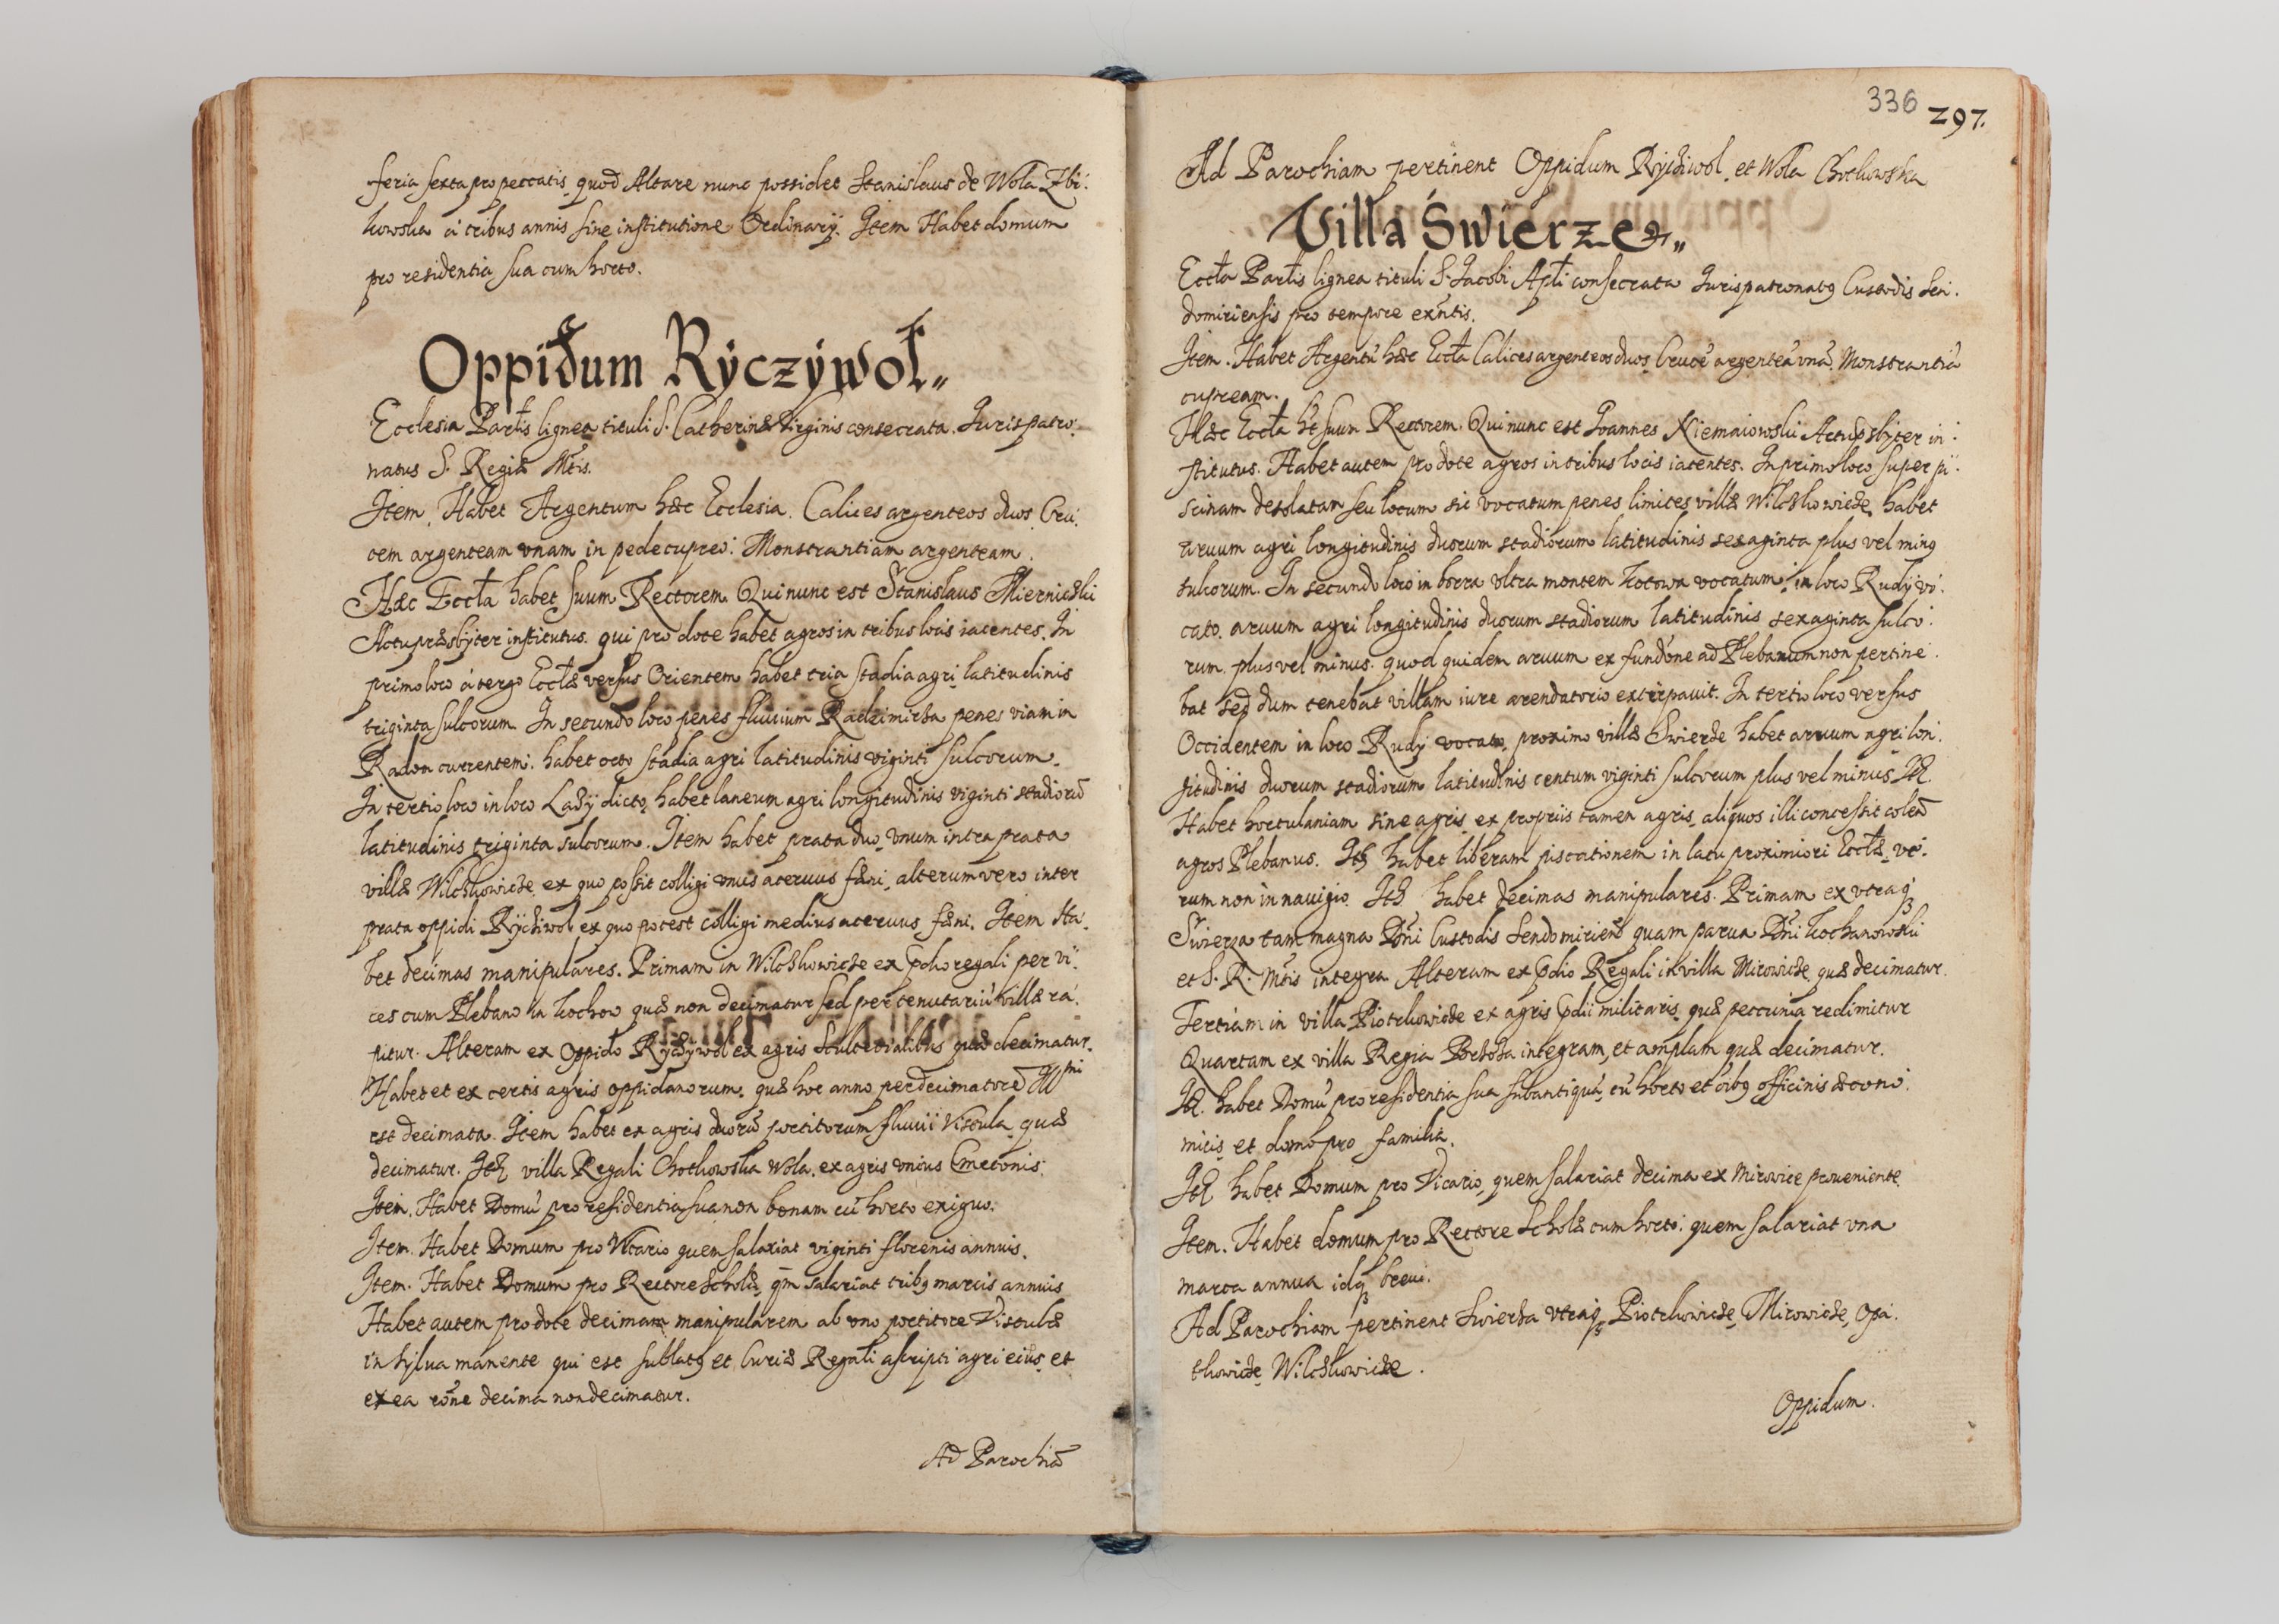 feria sexta pro peccatis, quod Altare nunc possidet Stanislaus de Wola Zbi:
kowska à tribus annis sine institutione Ordinarij. Item Habet domum
pro residentia sua cum horto.
Oppidum Ryczywoł„
Ecclesia Parłis lignea tituli S. Catherinæ Virginis consecrata. Iurispatro:
natus S. Regiæ Mtis.
Item. Habet Argentum hæc Ecclesia. Calices argenteos duos, Cru:
cem argenteam vnam in pede cupreo: Monstrantiam argenteam.
Hæc Eccła habet suum Rectorem. Qui nunc est Stanislaus Mierniczki
Actupræsbyter institutus. qui pro dote habet agros in tribus locis iacentes. In
primo loco à tergo Eccłæ versus Orientem habet tria stadia agri latitudinis
triginta sulcorum. In secundo loco penes fluuium Radzimirka penes viam in
Radom currentem. habet octo stadia agri latitudinis viginti sulcorum.
In tertio loco in loco Lady dicto, habet laneum agri longitudinis viginti stadiorū
latitudinis triginta sulcorum. Item habet prata duo, vnum intra prata
villæ Wilczkowicze, ex quo possit colligi vnus aceruus fæni, alterum vero inter
prata oppidi Rycziwol ex quo potest colligi medius aceruus fæni. Item Ha:
bet decimas manipulares. Primam in Wilczkowicze ex prdio regali per vi:
ces cum Plebano in Kochow quæ non decimatur sed per tenutariū villæ ra:
pitur. Alteram ex Oppido Ryczywol ex agris Scultetialibus quæ decimatur.
Habet et ex certis agris oppidanorum, quæ hoc anno per decimatorē Illmi
est decimata. Item habet ex agris duorū portitorum fluuii Vistula quæ
decimatur. Itē villa Regali Chotkowska Wola, ex agris vnius Cmetonis.
Item. Habet Domū pro residentia sua non bonam cū horto exiguo.
Item. Habet Domum pro Vicario quem salariat viginti florenis annuis.
Item. Habet Domum pro Rectore Scholæ, qm salariat trib9 marcis annuis
Habet autem pro dote decimam manipularem ab vno portitore Vistulæ
in sylua manente qui est sublat9 et Curiæ Regali ascripti agri eius, et
ex ea rōne decima non decimatur.
Ad Parochiā
336 297.
Ad Parochiam pertinent Oppidum Rycziwol, et Wola Chotkowska
Villa Swierze„
Eccła Parłis lignea tituli S. Jacobi Apłi consecrata Iurispatronat9 Custodis Sen:
domiriensis pro tempore exntis.
Item. Habet Argentū hæc Eccła Calices argenteos duos, Crucē argenteā vnā, Monstrantiā
cupream.
Hæc Eccła ht suum Rectorem. Qui nunc est Joannes Niemaiowski Actupsbyter in:
stitutus. Habet autem pro dote agros in tribus locis iacentes. In primo loco super pi:
scinam desolatam seu locum sic vocatum penes limites villæ Wilczkowicze, habet
aruum agri longitudinis duorum stadiorum latitudinis sexaginta plus vel min9
sulcorum. In secundo loco in borra vltra montem Kotowa vocatum, in loco Rudy vo:
cato. aruum agri longitudinis duorum stadiorum latitudinis sexaginta sulco:
rum. plus vel minus. quod quidem aruum ex fundōne ad Plebanum non pertine:
bat sed dum tenebat villam iure arendatorio extirpauit. In tertio loco versus
Occidentem in loco Rudy vocato, proximo villæ Swierze habet aruum agri lon:
gitudinis duorum stadiorum latitudinis centum viginti sulcorum plus vel minus. Itē.
Habet hortulaniam sine agris, ex propriis tamen agris, aliquos illi concessit colēd
agros Plebanus. Itē habet liberam piscationem in lacu proximiori Eccłæ, ve:
rum non in nauigio. Itē habet decimas manipulares. Primam ex vtraq3
Swierza tam magna Dni Custodis Sendomirien quam parua Dni Kochanowski
et S. R. Mtis integra. Alteram ex prdio Regali in villa Mirowicze, quæ decimatur.
Tertiam in villa Piotrkowicze ex agris prdii militaris, quæ peccunia redimitur
Quartam ex villa Regia integram, et amplam quæ decimatur.
Itē. habet Domū pro residentia sua subantiquā, cū horto et oib9 officinis æcono:
micis, et domo pro familia.
Itē habet Domum pro Vicario, quem salariat decima ex Mirowice proueniente.
Item. Habet domum pro Rectore Scholæ cum horto: quem salariat vna
marca annua idq3 breui.
Ad Parochiam pertinent Swierza vtraq3, Piotrkowicze, Mirowicze, Opa:
tkowicze, Wilczkowicze.
Oppidum.